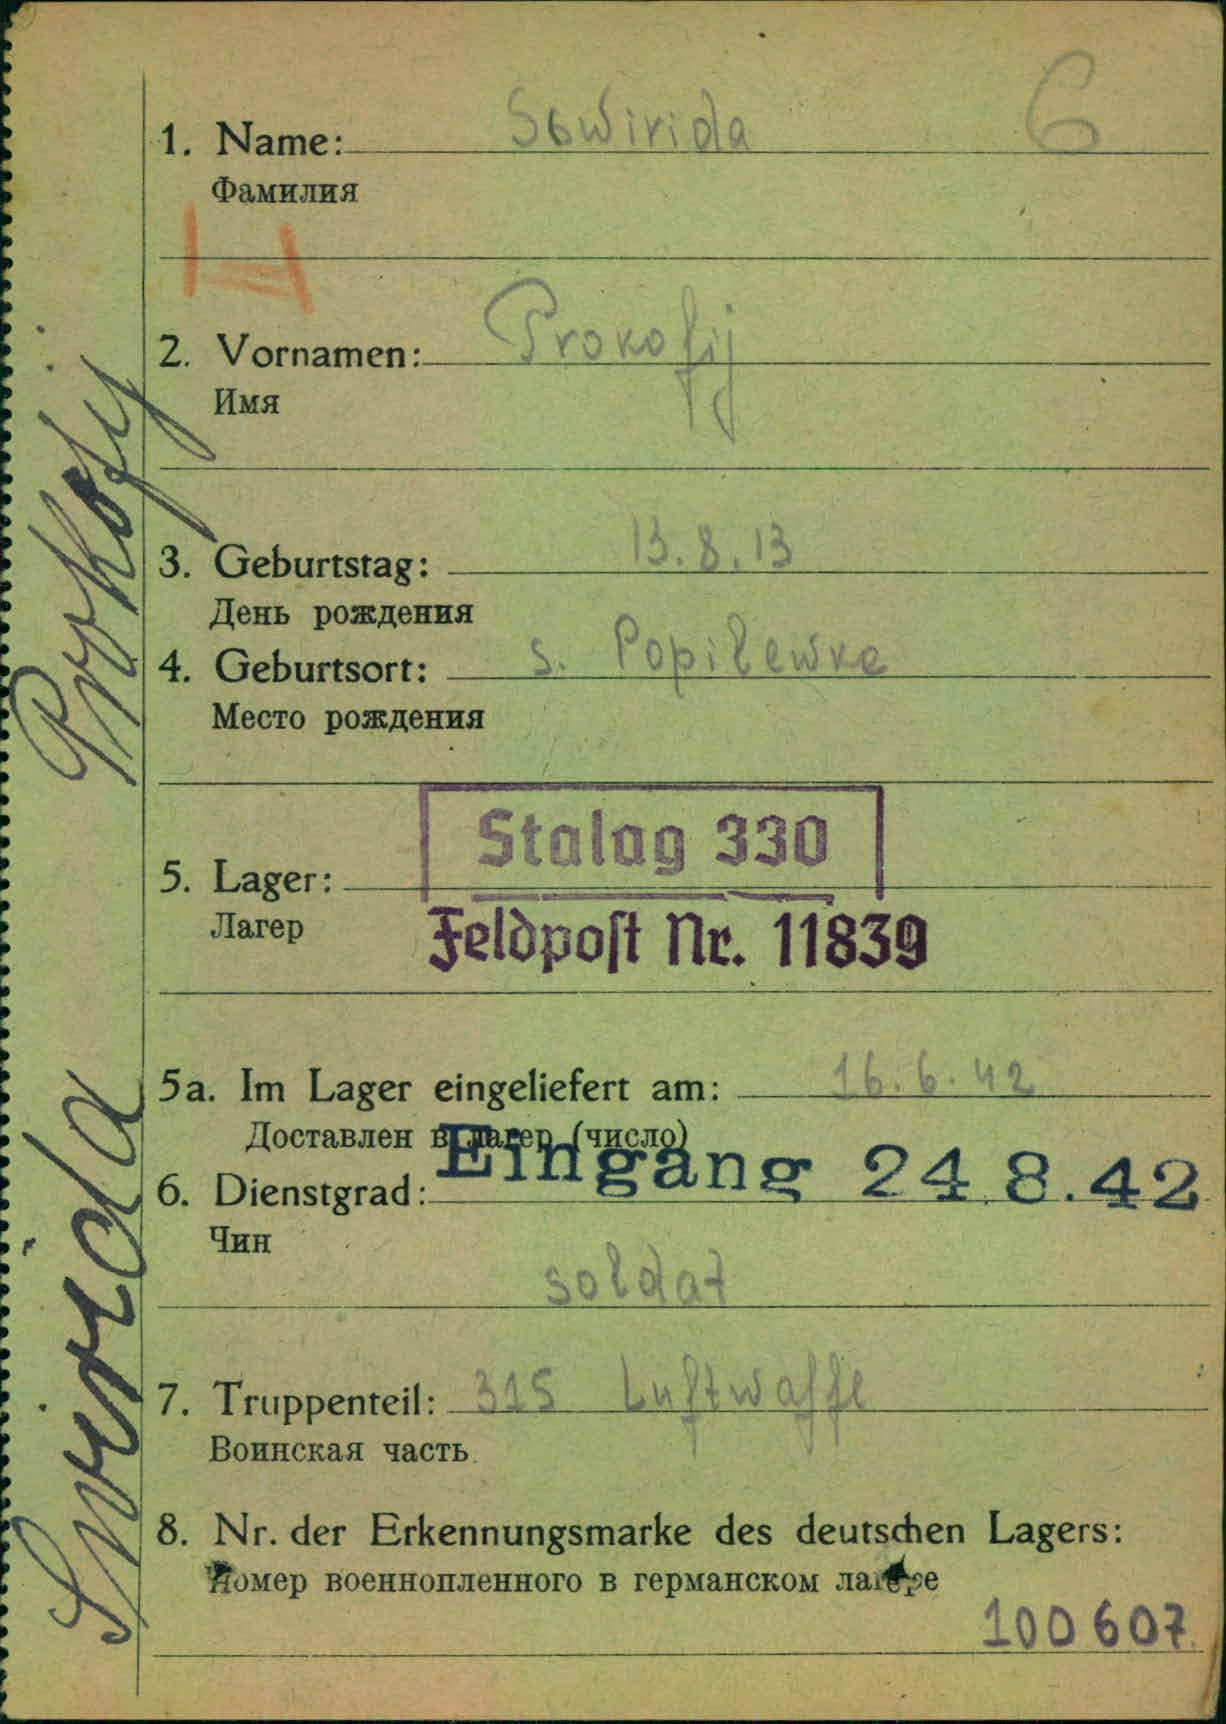 1. Name: Sowirida
C
Фамилия
2. Vornamen: Prokofij
Имя
3. Geburtstag: 13.8.13
День рождения
4. Geburtsort: s. Popilewke
Место рождения
Stalag 330
5. Lager:
Лагер
Feldpost Nr. 11839
5a. Im Lager eingeliefert am: 16.6.42
Доставлен в лагер (число)
Eingang 24.8.42
6. Dienstgrad:
Чин
soldat
7. Truppenteil: 315 Luftwaffe
Воинская часть
8. Nr. der Erkennungsmarke des deutschen Lagers:
Номер военнопленного в германском лагере
100607
Swirida Prokofij